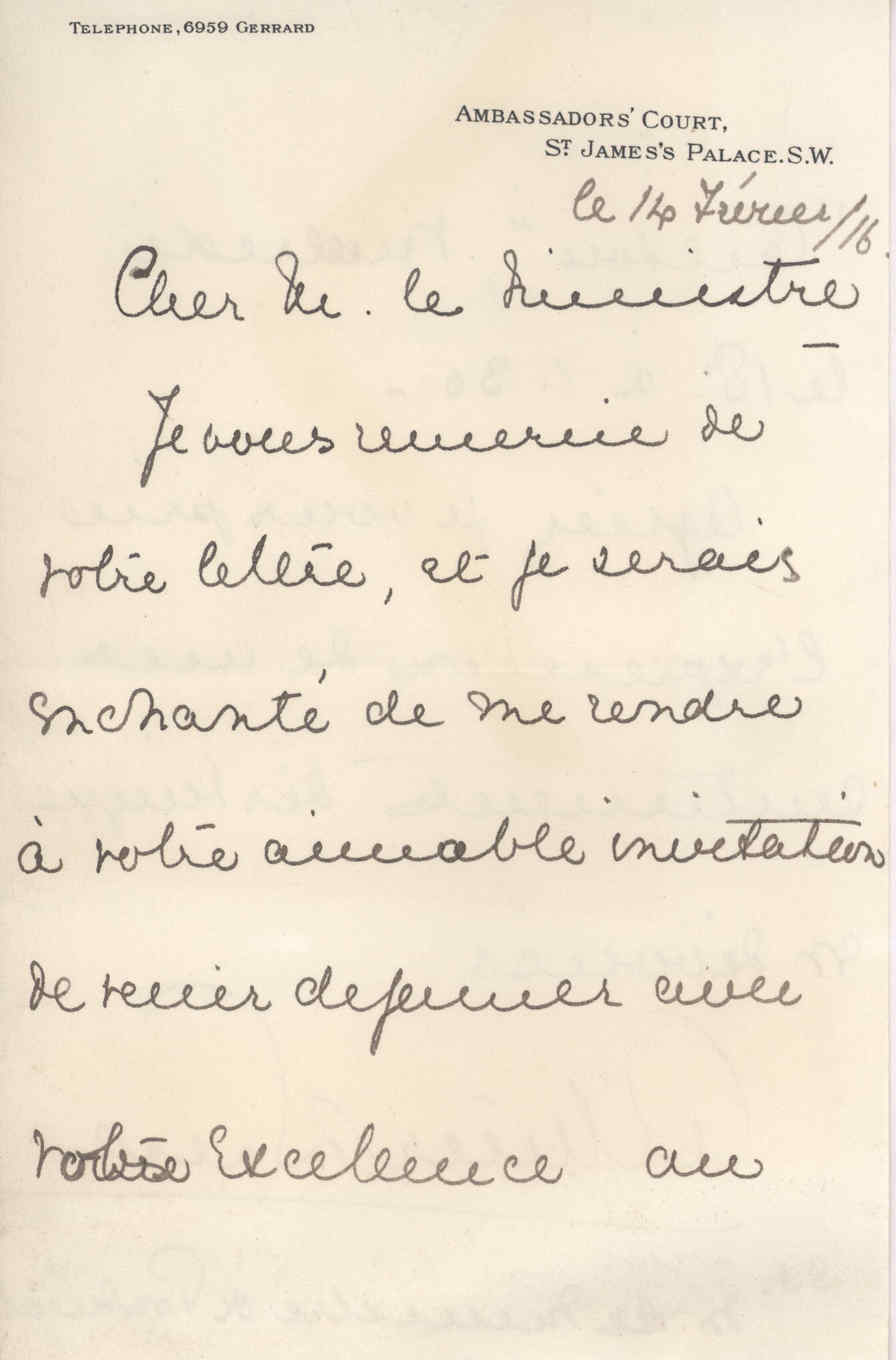 TELEPHONE, 6959 GERRARD
AMBASSADORS' COURT,
ST JAMES'S PALACE. S.W.
le 14 Février/16.
Cher M. le Ministre
Je vous remercie de
votre lettre, et je serais
enchanté de me rendre
à votre aimable invitation
de venir dejeuner avec
votre Excellence au